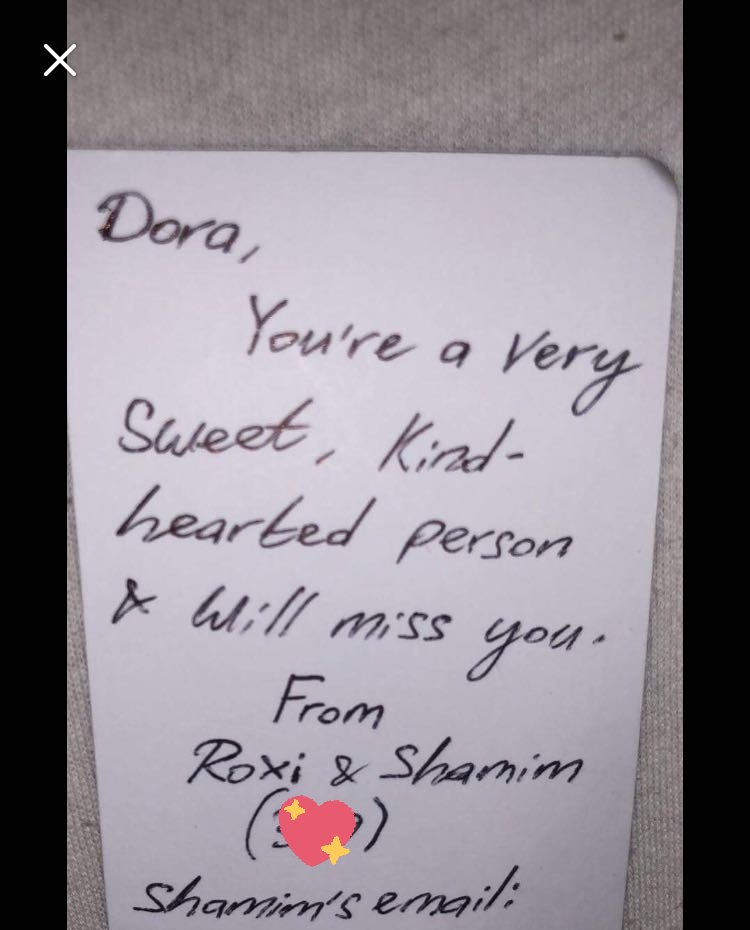 Dora,
You're a very
Sweet, Kind-
hearted person
& Will miss you.
From
Roxi & Shamim
Shamim's email: